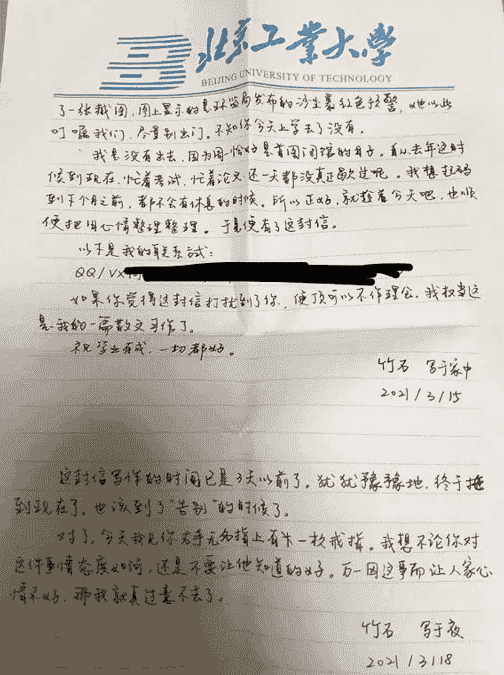 北京工业大学
BEIJING UNIVERSITY OF TECHNOLOGY
了一张截图,图上显示的是环监局发布的沙尘暴红色预警,她以此
叮嘱我们,尽量别出门。不知你今天上学去了没有。
我是没有出去,因为周一恰好是首图闭馆的日子。再从去年这时
候到现在,忙着考试,忙着论文还一天都没真正歇过呢。我想起码
到下个月之前,都不会有休息的时候。所以正好,就趁着今天吧,也顺
便把旧心情整理整理。于是便有了这封信。
以下是我的联系式:
QQ/VX
如果你觉得这封信打扰到了你,便顶可以不作理会。我权当这
是我的一篇散文习作了。
祝学业有成,一切都好。
竹石 写于家中
2021/3/15
这封信写作的时间已是3天以前了。犹犹豫豫地,终于拖
到现在了,也该到了“告别”的时候了。
对了,今天我见你右手无名指上有一枚戒指。我想不论你对
这件事情态度如何,还是不要让他知道的好。万一因这事而让人家心
情不好,那我就真过意不去了。
竹石 写于夜
2021/3/18